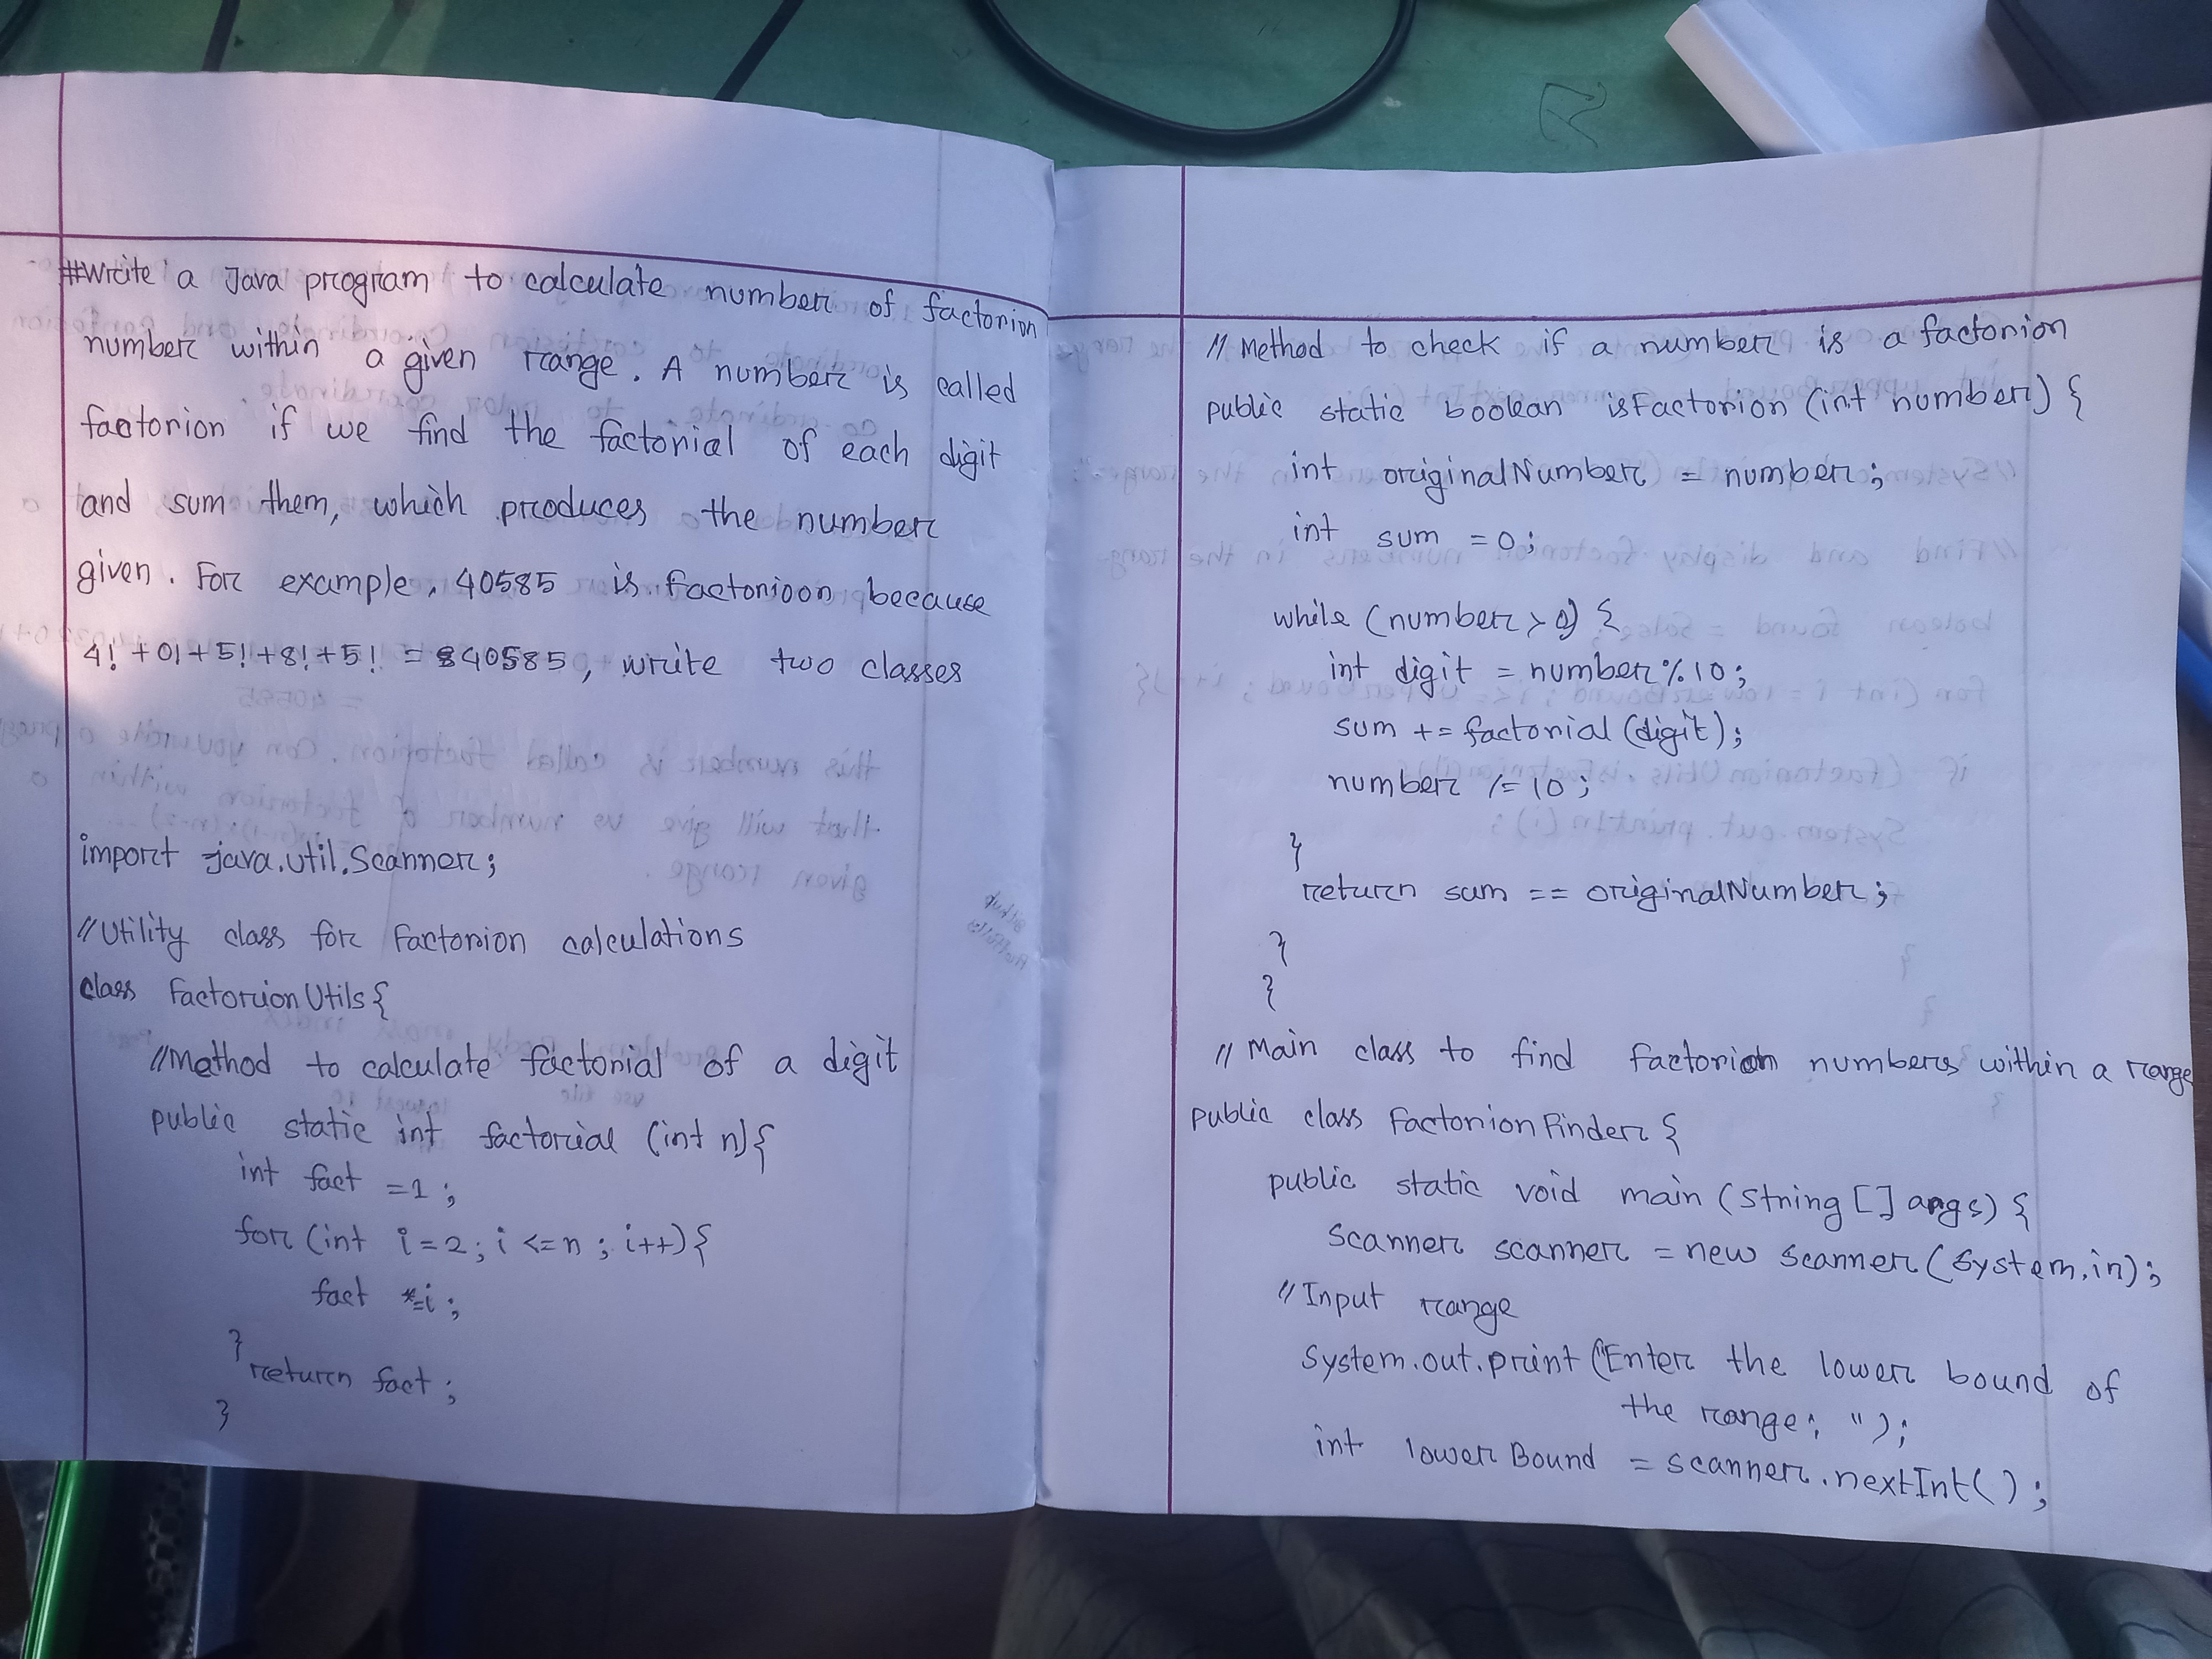 ##Write a Java program to calculate number of factorion
number within a given range. A number is called
factorion if we find the factorial of each digit
and sum them, which produces the number
given. For example, 40585 is factorion because
4! + 0! + 5! + 8! + 5! = 40585, write two classes
import java.util.Scanner;
//Utility class for factorion calculations
class factorionUtils{
//Method to calculate factorial of a digit
public static int factorial (int n){
int fact = 1;
for (int i = 2; i <= n; i++){
fact *= i;
}
return fact;
}
// Method to check if a number is a factorion
public static boolean isFactorion (int number) {
int originalNumber = number;
int sum = 0;
while (number > 0) {
int digit = number % 10;
sum += factorial (digit);
number /= 10;
}
return sum == originalNumber;
}
}
// Main class to find factorion numbers within a range
public class factorionFinder {
public static void main (String [] args) {
Scanner scanner = new Scanner (System.in);
//Input range
System.out.print ("Enter the lower bound of
the range: ");
int lowerBound = scanner.nextInt();